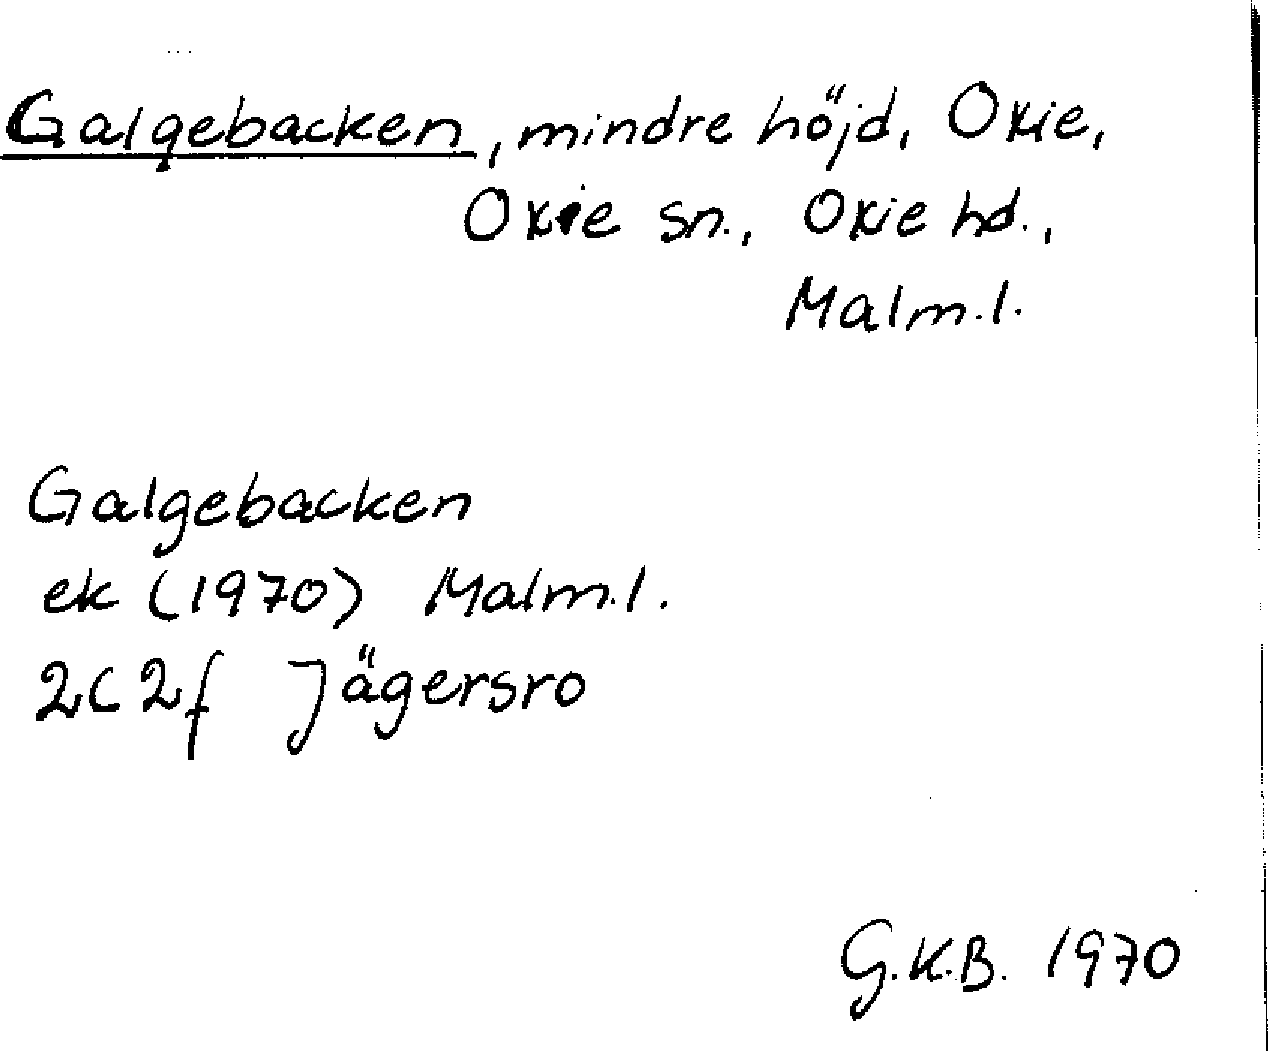 Galgebacken, mindre höjd, Oxie,
Oxie sn., Oxie hd.,
Malm.l.
Galgebacken
ek (1970) Malm.l.
2C2f Jägersro
G.K.B. 1970